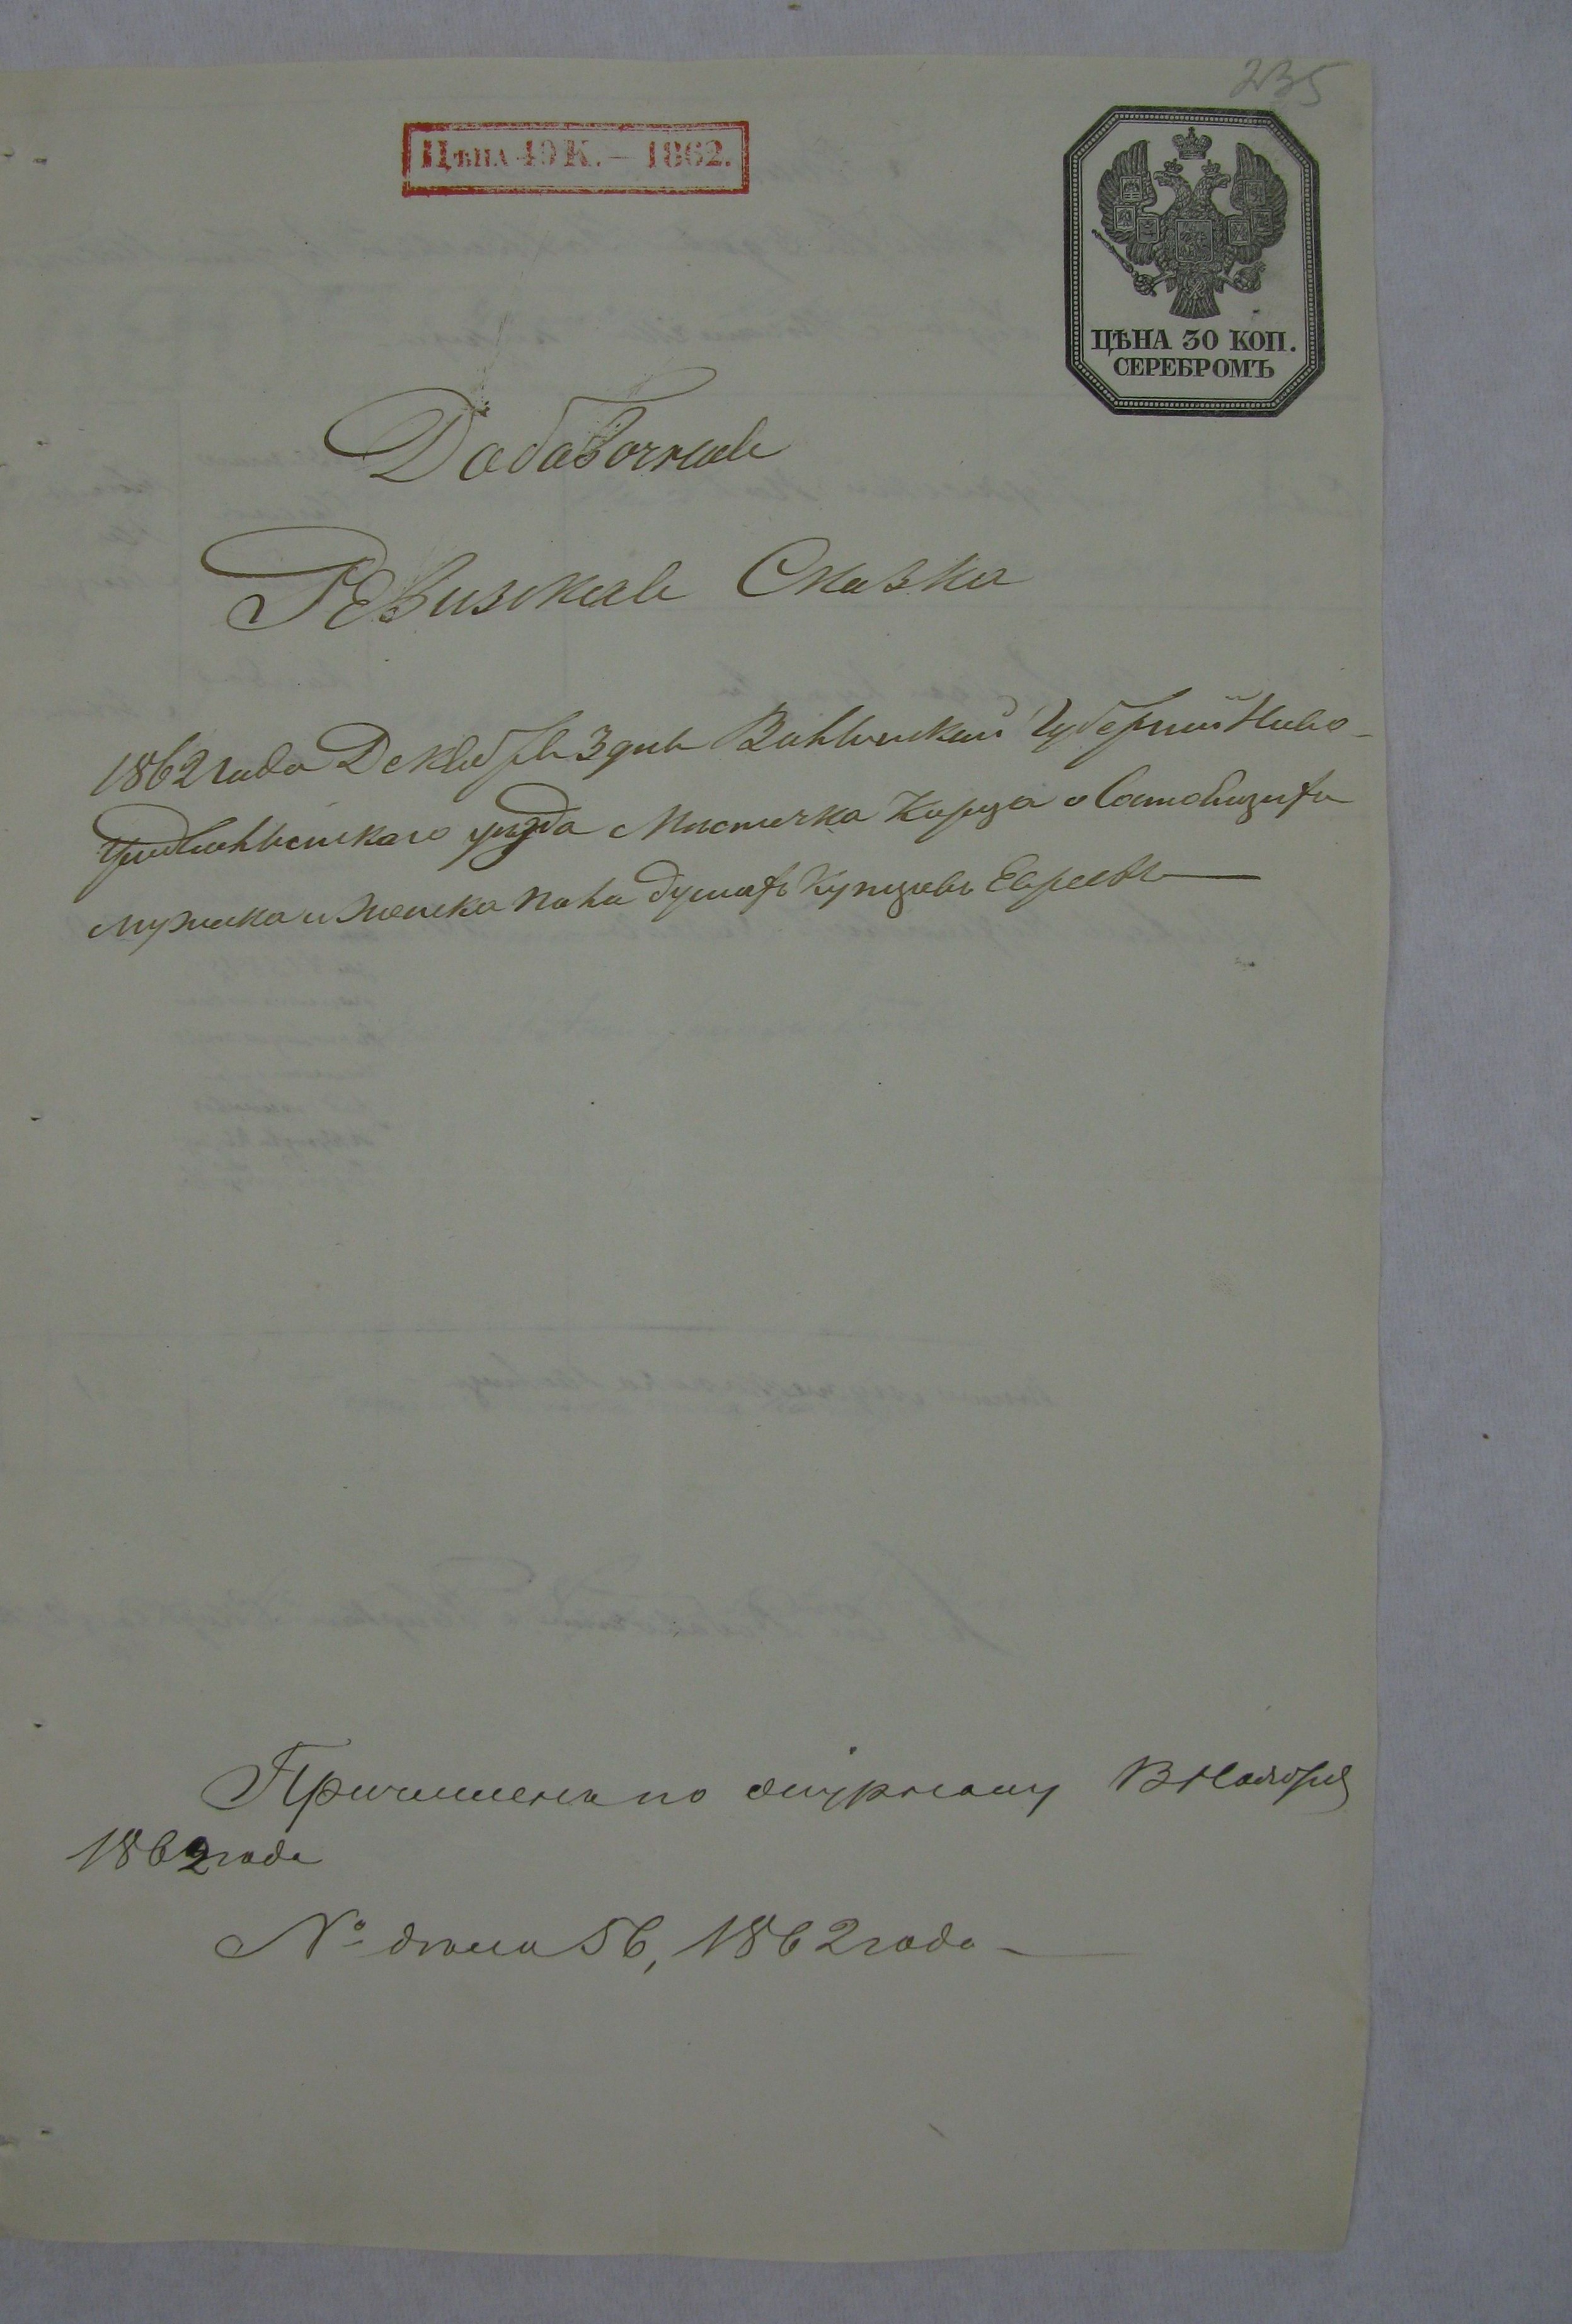 235
ЦѢНА 40 К. — 1862.
ЦѢНА 30 КОП.
СЕРЕБРОМЪ
Добавочная
Ревизская Сказка
1862 года Декабря 3 дня Волынской Губернии Ново-
градволынскаго уѣзда Мѣстечка Корца о Состоящихъ
мужска и женска пола душахъ Купцовъ Евреевъ
Причислена по
1862 года
№ дѣла 56, 1862 года